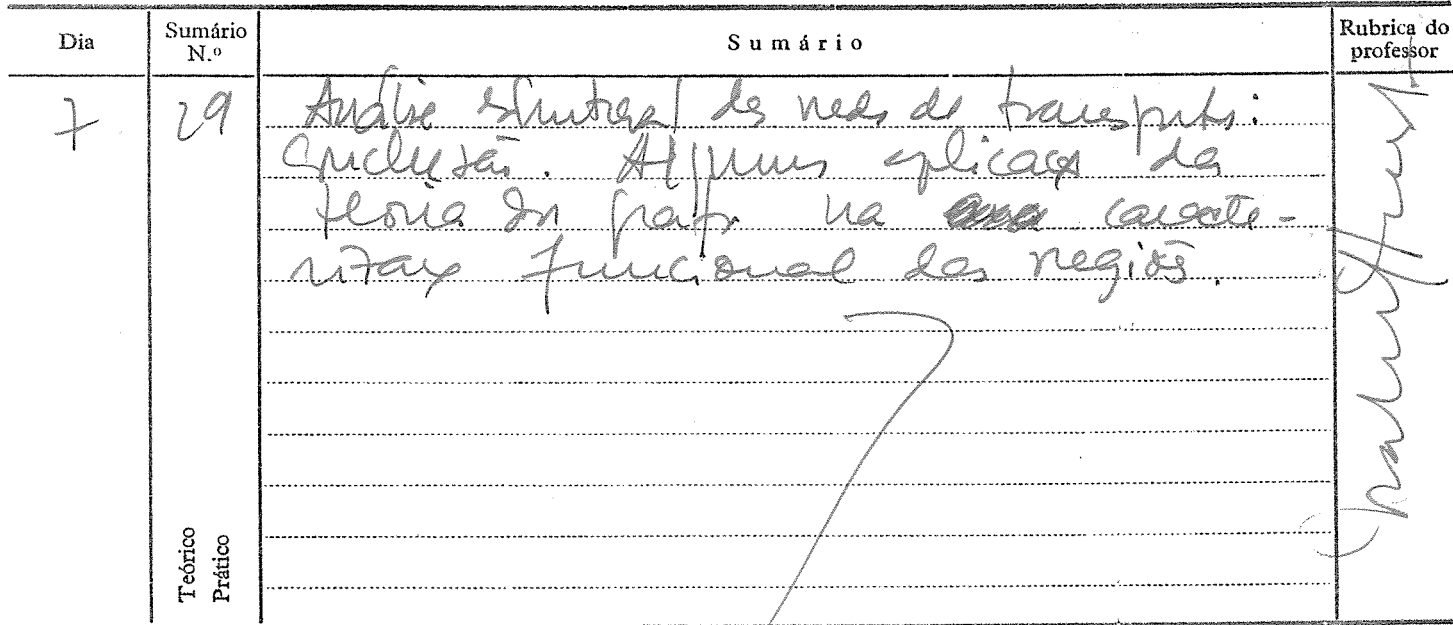 Dia
Sumário N.º
Sumário
Rubrica do professor
7
29
Análise estrutural das redes de transportes:
conclusão. Algumas aplicações da
teoria dos grafos na caracte-
rização funcional das regiões.
Teórico
Prático